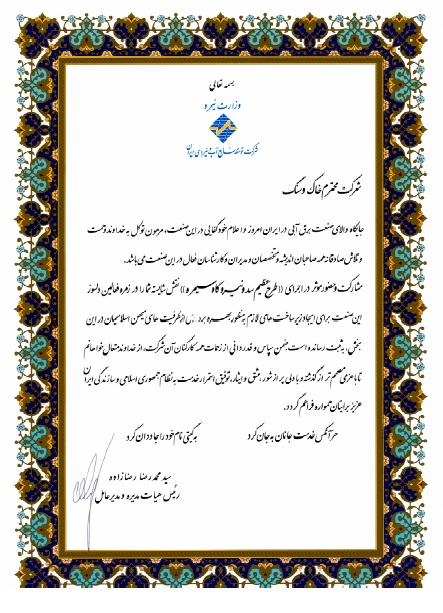 بسمه تعالی
وزارت نیرو
شرکت توسعه منابع آب و نیروی ایران
شرکت محترم خاک و سنگ
جایگاه والای صنعت برق آبی در ایران امروز و اعلام خودکفایی در این صنعت، مرهون توکل به خداوند و همت
و تلاش صادقانه همه صاحبان اندیشه و متخصصان و مدیران و کارشناسان فعال در این صنعت می باشد.
مشارکت و حضور موثر در اجرای ((طرح عظیم سد و نیروگاه سیمره)) نقش شایسته شما را در زمره فعالین دلسوز
این صنعت برای ایجاد زیرساخت های لازم بمنظور بهره از ظرفیت های میهن اسلامیمان در این
بخش، به ثبت رسانده است. ضمن سپاس و قدردانی از زحمات همه کارکنان آن شرکت، از خداوند متعال خواهانم
تا با عزمی مصمم تر از گذشته و با دلی پر از شور، عشق و ایثار، توفیق استمرار خدمت به نظام جمهوری اسلامی و سازندگی ایران
عزیز برایتان همواره فراهم گردد.
هر آنکس خدمت جانان به جان کرد به گیتی نام خود را جاودان کرد
سید محمدرضا رضازاده
رئیس هیات مدیره و مدیرعامل